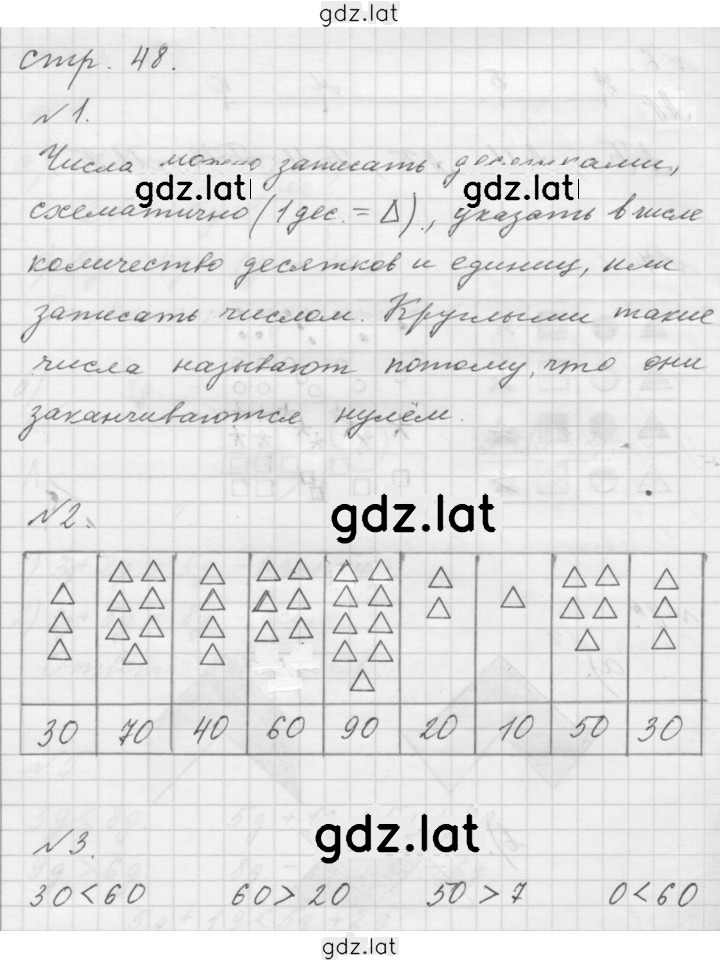 gdz.lat
стр. 48.
№1.
Числа можно записать десятками,
gdz.lat gdz.lat
схематично (1 дес. = Δ)., указать в числе
количество десятков и единиц, или
записать числом. Круглыми такие
числа называют потому, что они
заканчиваются нулём.
№2.
gdz.lat
30 70 40 60 90 20 10 50 30
№3.
gdz.lat
30<60 60>20 50>7 0<60
gdz.lat